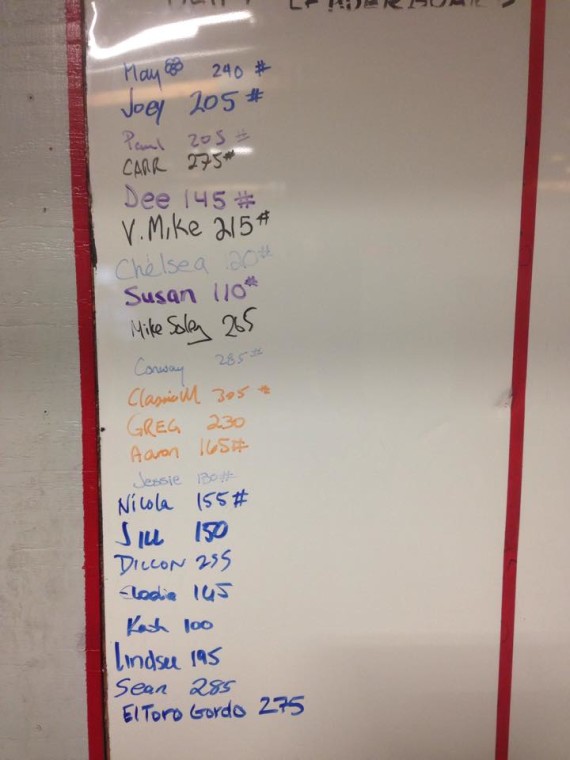 LEADERBOARDS
May 240 #
Joey 205 #
Paul 205 #
CARR 275#
Dee 145 #
V. Mike 215 #
Chelsea 120#
Susan 110#
Mike Soley 265
Conway 285#
Classic M 305 #
GREG 230
Aaron 165#
Jessie 130#
Nicola 155#
Jill 150
DILLON 255
Elodia 145
Kash 100
Lindsee 195
Sean 285
El Toro Gordo 275